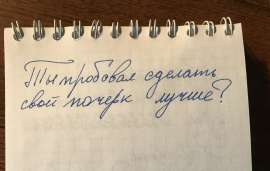 Ты пробовал сделать
свой почерк лучше?